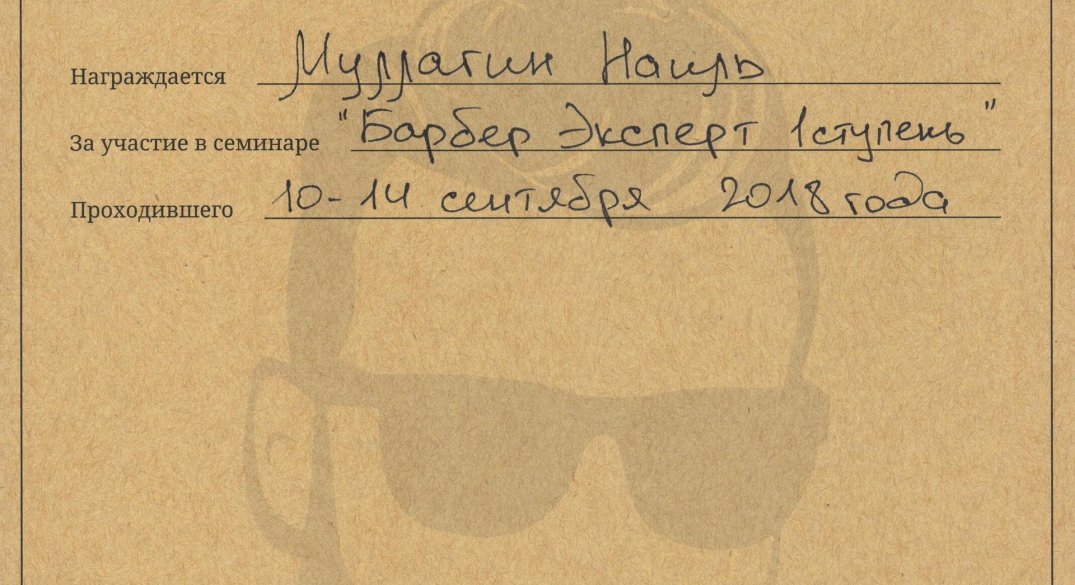 Награждается Наиль
За участие в семинаре "Барбер Эксперт 1 ступень"
Проходившего 10-14 сентября 2018 года